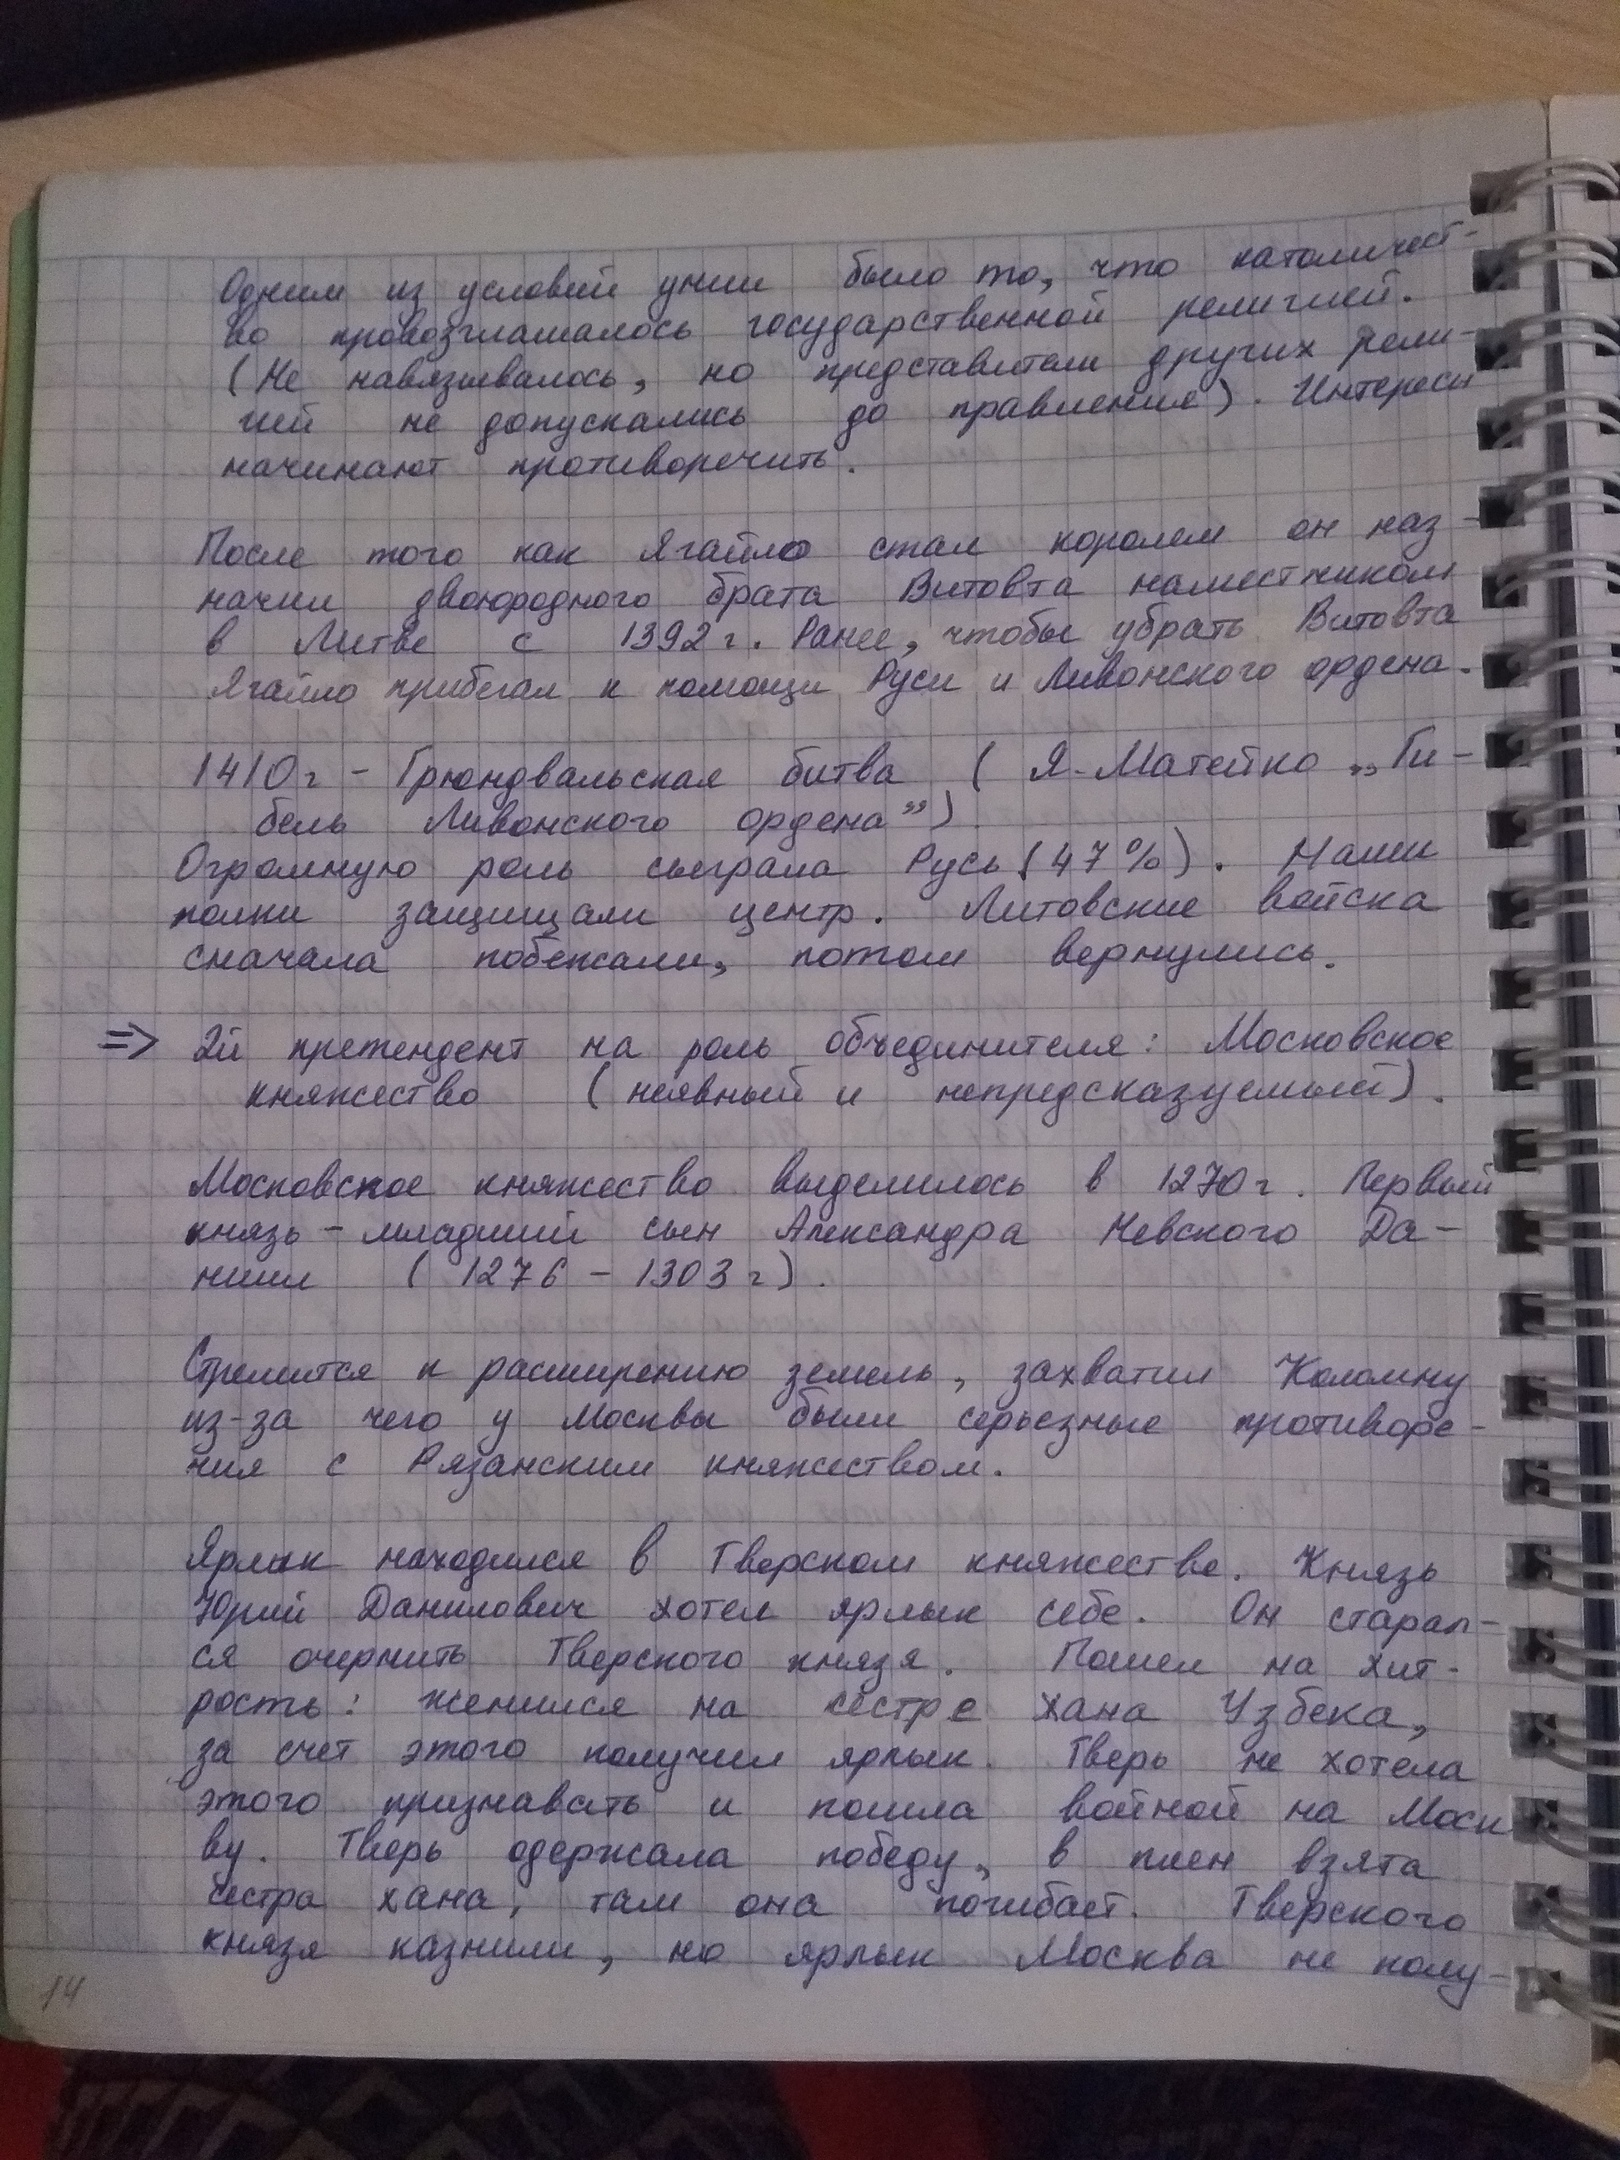 Одним из условий унии было то, что католичест-
во провозглашалось государственной религией.
(Не навязывалось, но представители других рели-
гий не допускались до правления). Интересы
начинают противоречить.
После того как Ягайло стал королем он наз-
начил двоюродного брата Витовта наместником
в Литве с 1392 г. Ранее, чтобы убрать Витовта
Ягайло прибегал к помощи Руси и Ливонского ордена.
1410 г - Грюндвальская битва ( Я. Матейко „Ги-
бель Ливонского ордена”)
Огромную роль сыграла Русь (47%). Наши
полки защищали центр. Литовские войска
сначала побежали, потом вернулись.
=> 2й претендент на роль объединителя: Московское
княжество (неявный и непредсказуемый).
Московское княжество выделилось в 1270 г. Первый
князь - младший сын Александра Невского Да-
ниил (1276 - 1303 г).
Стремится к расширению земель, захватил Коломну
из-за чего у Москвы были серьезные противоре-
чия с Рязанским княжеством.
Ярлык находился в Тверском княжестве. Князь
Юрий Данилович хотел ярлык себе. Он старал-
ся очернить Тверского князя. Пошел на хит-
рость: женился на сестре хана Узбека,
за счет этого получил ярлык. Тверь не хотела
этого признавать и пошла войной на Моск
ву. Тверь одержала победу, в плен взята
сестра хана, там она погибает. Тверского
князя казнили, но ярлык Москва не полу-
14